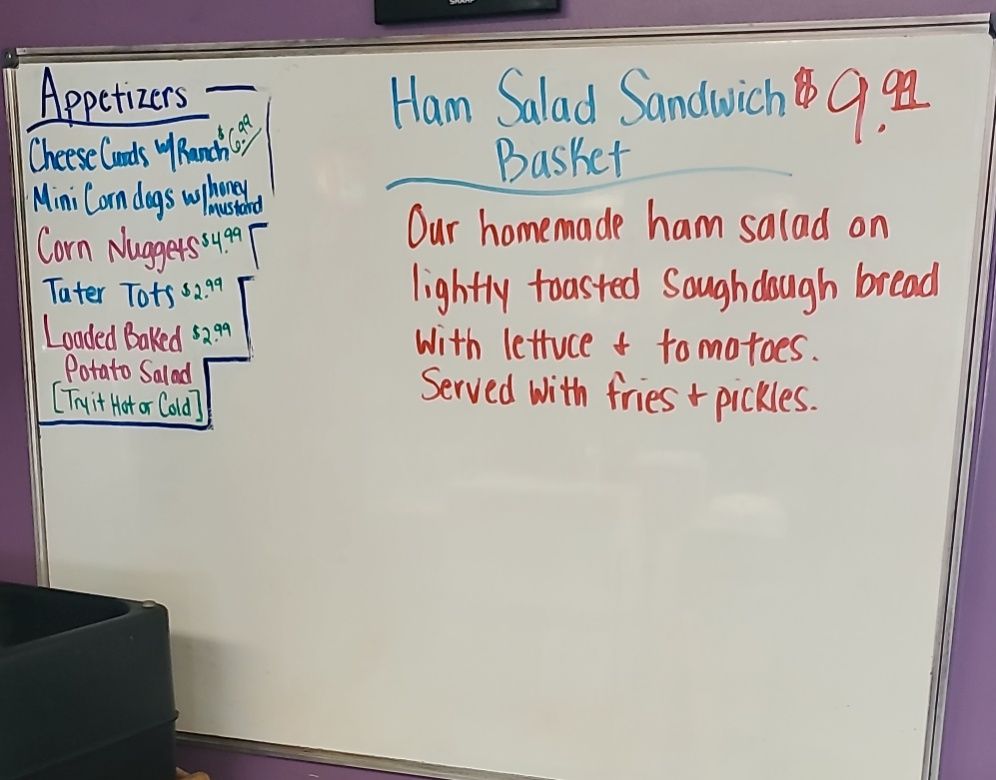 Appetizers
Cheese Curds w/ Ranch $6.99/
Mini Corn dogs w/ honey
mustard
Corn Nuggets $4.99
Tater Tots $2.99
Loaded Baked $2.99
Potato Salad
[Try it Hot or Cold]
Ham Salad Sandwich $9.99
Basket
Our homemade ham salad on
lightly toasted Soughdough bread
with lettuce + tomatoes.
Served with fries + pickles.